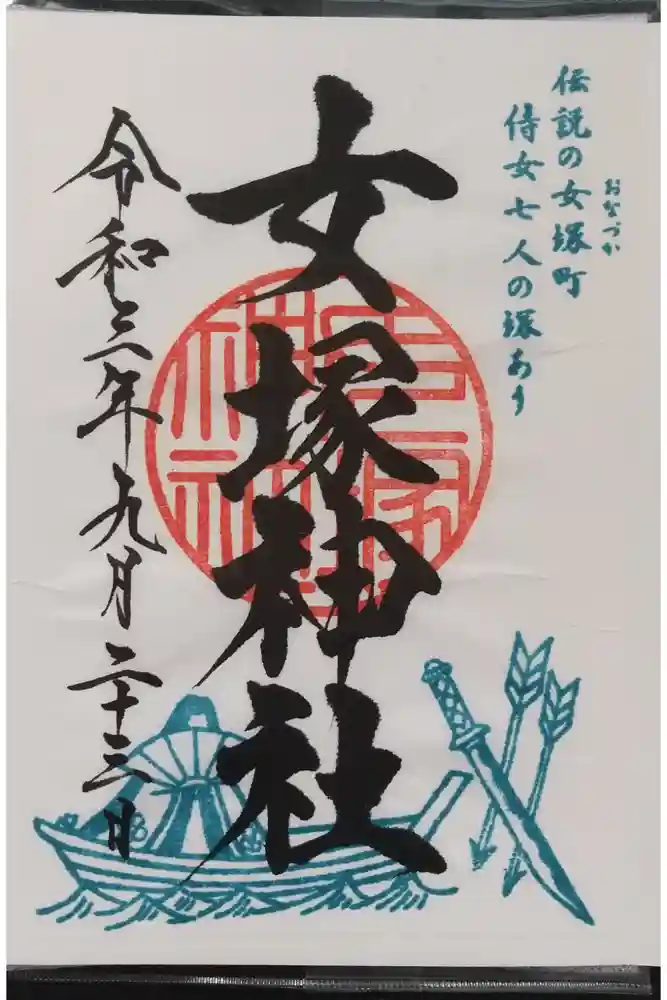 伝説の女塚町
おなづか
侍女七人の塚あり
女塚神社
令和三年九月二十三日
女塚神社